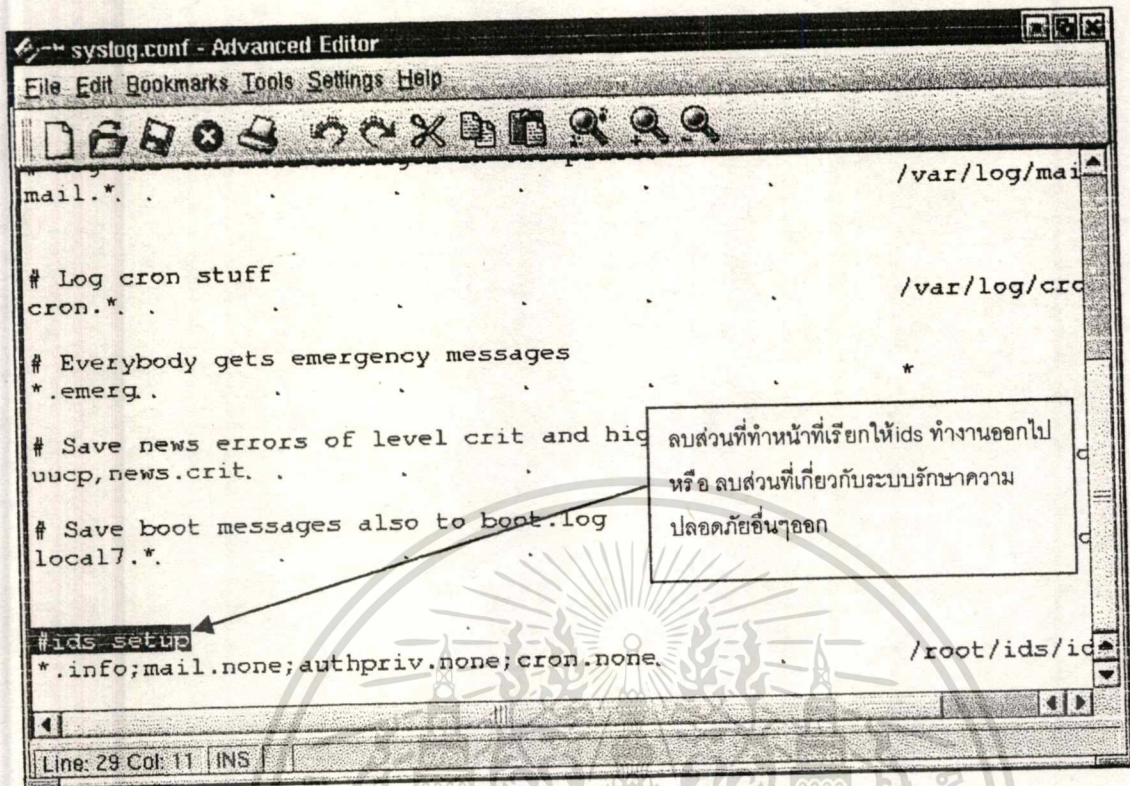 syslog.conf - Advanced Editor
File Edit Bookmarks Tools Settings Help
mail.*. . . . . . /var/log/mai
# Log cron stuff
cron.*. . . . . . /var/log/cro
# Everybody gets emergency messages
*.emerg. . . . . . *
# Save news errors of level crit and hig
uucp,news.crit. . . .
# Save boot messages also to boot.log
local7.*. . . .
ลบส่วนที่ทำหน้าที่เรียกให้ids ทำงานออกไป
หรือ ลบส่วนที่เกี่ยวกับระบบรักษาความ
ปลอดภัยอื่นๆออก
#ids setup
*.info;mail.none;authpriv.none;cron.none. . /root/ids/id
Line: 29 Col: 11 INS